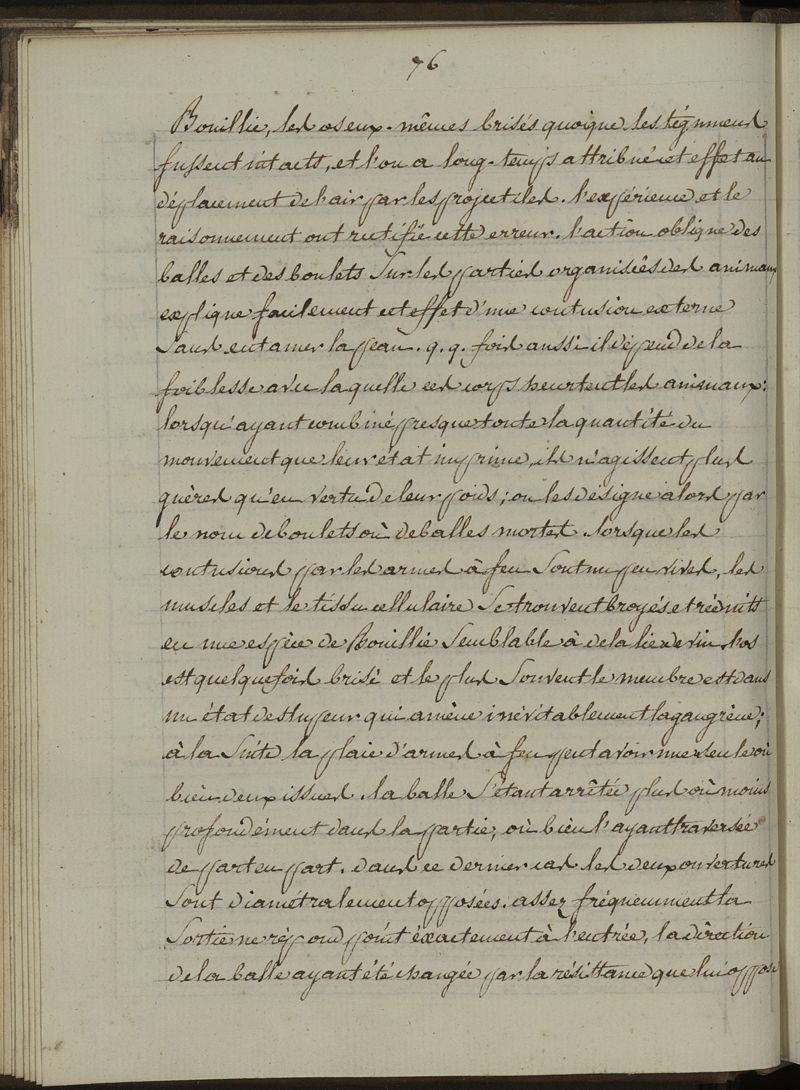 76
Bouillie, les os eux-mêmes brisés quoique les tégumens
fussent intacts, et l'on a long-temps attribué cet effet au
déplacement de l'air par les projectiles. l'expérience et le
raisonnement ont rectifié cette erreur. l'action oblique des
balles et des boulets sur les parties organisées des animaux
explique facilement cet effet d'une contusion externe
sans entamer la peau. q. q. fois aussi il dépend de la
foiblesse avec laquelle ces corps heurtent les animaux:
lorsqu'ayant combiné presque toute la quantité du
mouvement que leur état imprime, ils n'agissent plus
guères qu'en vertu de leur poids; on les désigne alors par
le nom de boulets où de balles mortes. lorsque les
contusions par les armes à feu sont un peu vives, les
muscles et le tissu cellulaire se trouvent broyés et réduits
en une espèce de Bouillie semblable à de la lie de vin. l'os
est quelquefois brisé et le plus souvent le membre est dans
un état de stupeur qui amène inévitablement la gangrène;
à la suite la plaie d'armes à feu peut avoir une seule où
bien deux issues. la balle s'étant arrêtée plus où moins
profondément dans la partie, où bien l'ayant traversée
de part en part. dans ce dernier cas les deux ouvertures
sont diamétralement opposées. assez fréquemment la
sortie ne répond point éxactement à l'entrée, la direction
de la balle ayant été changée par la résistance que lui oppose